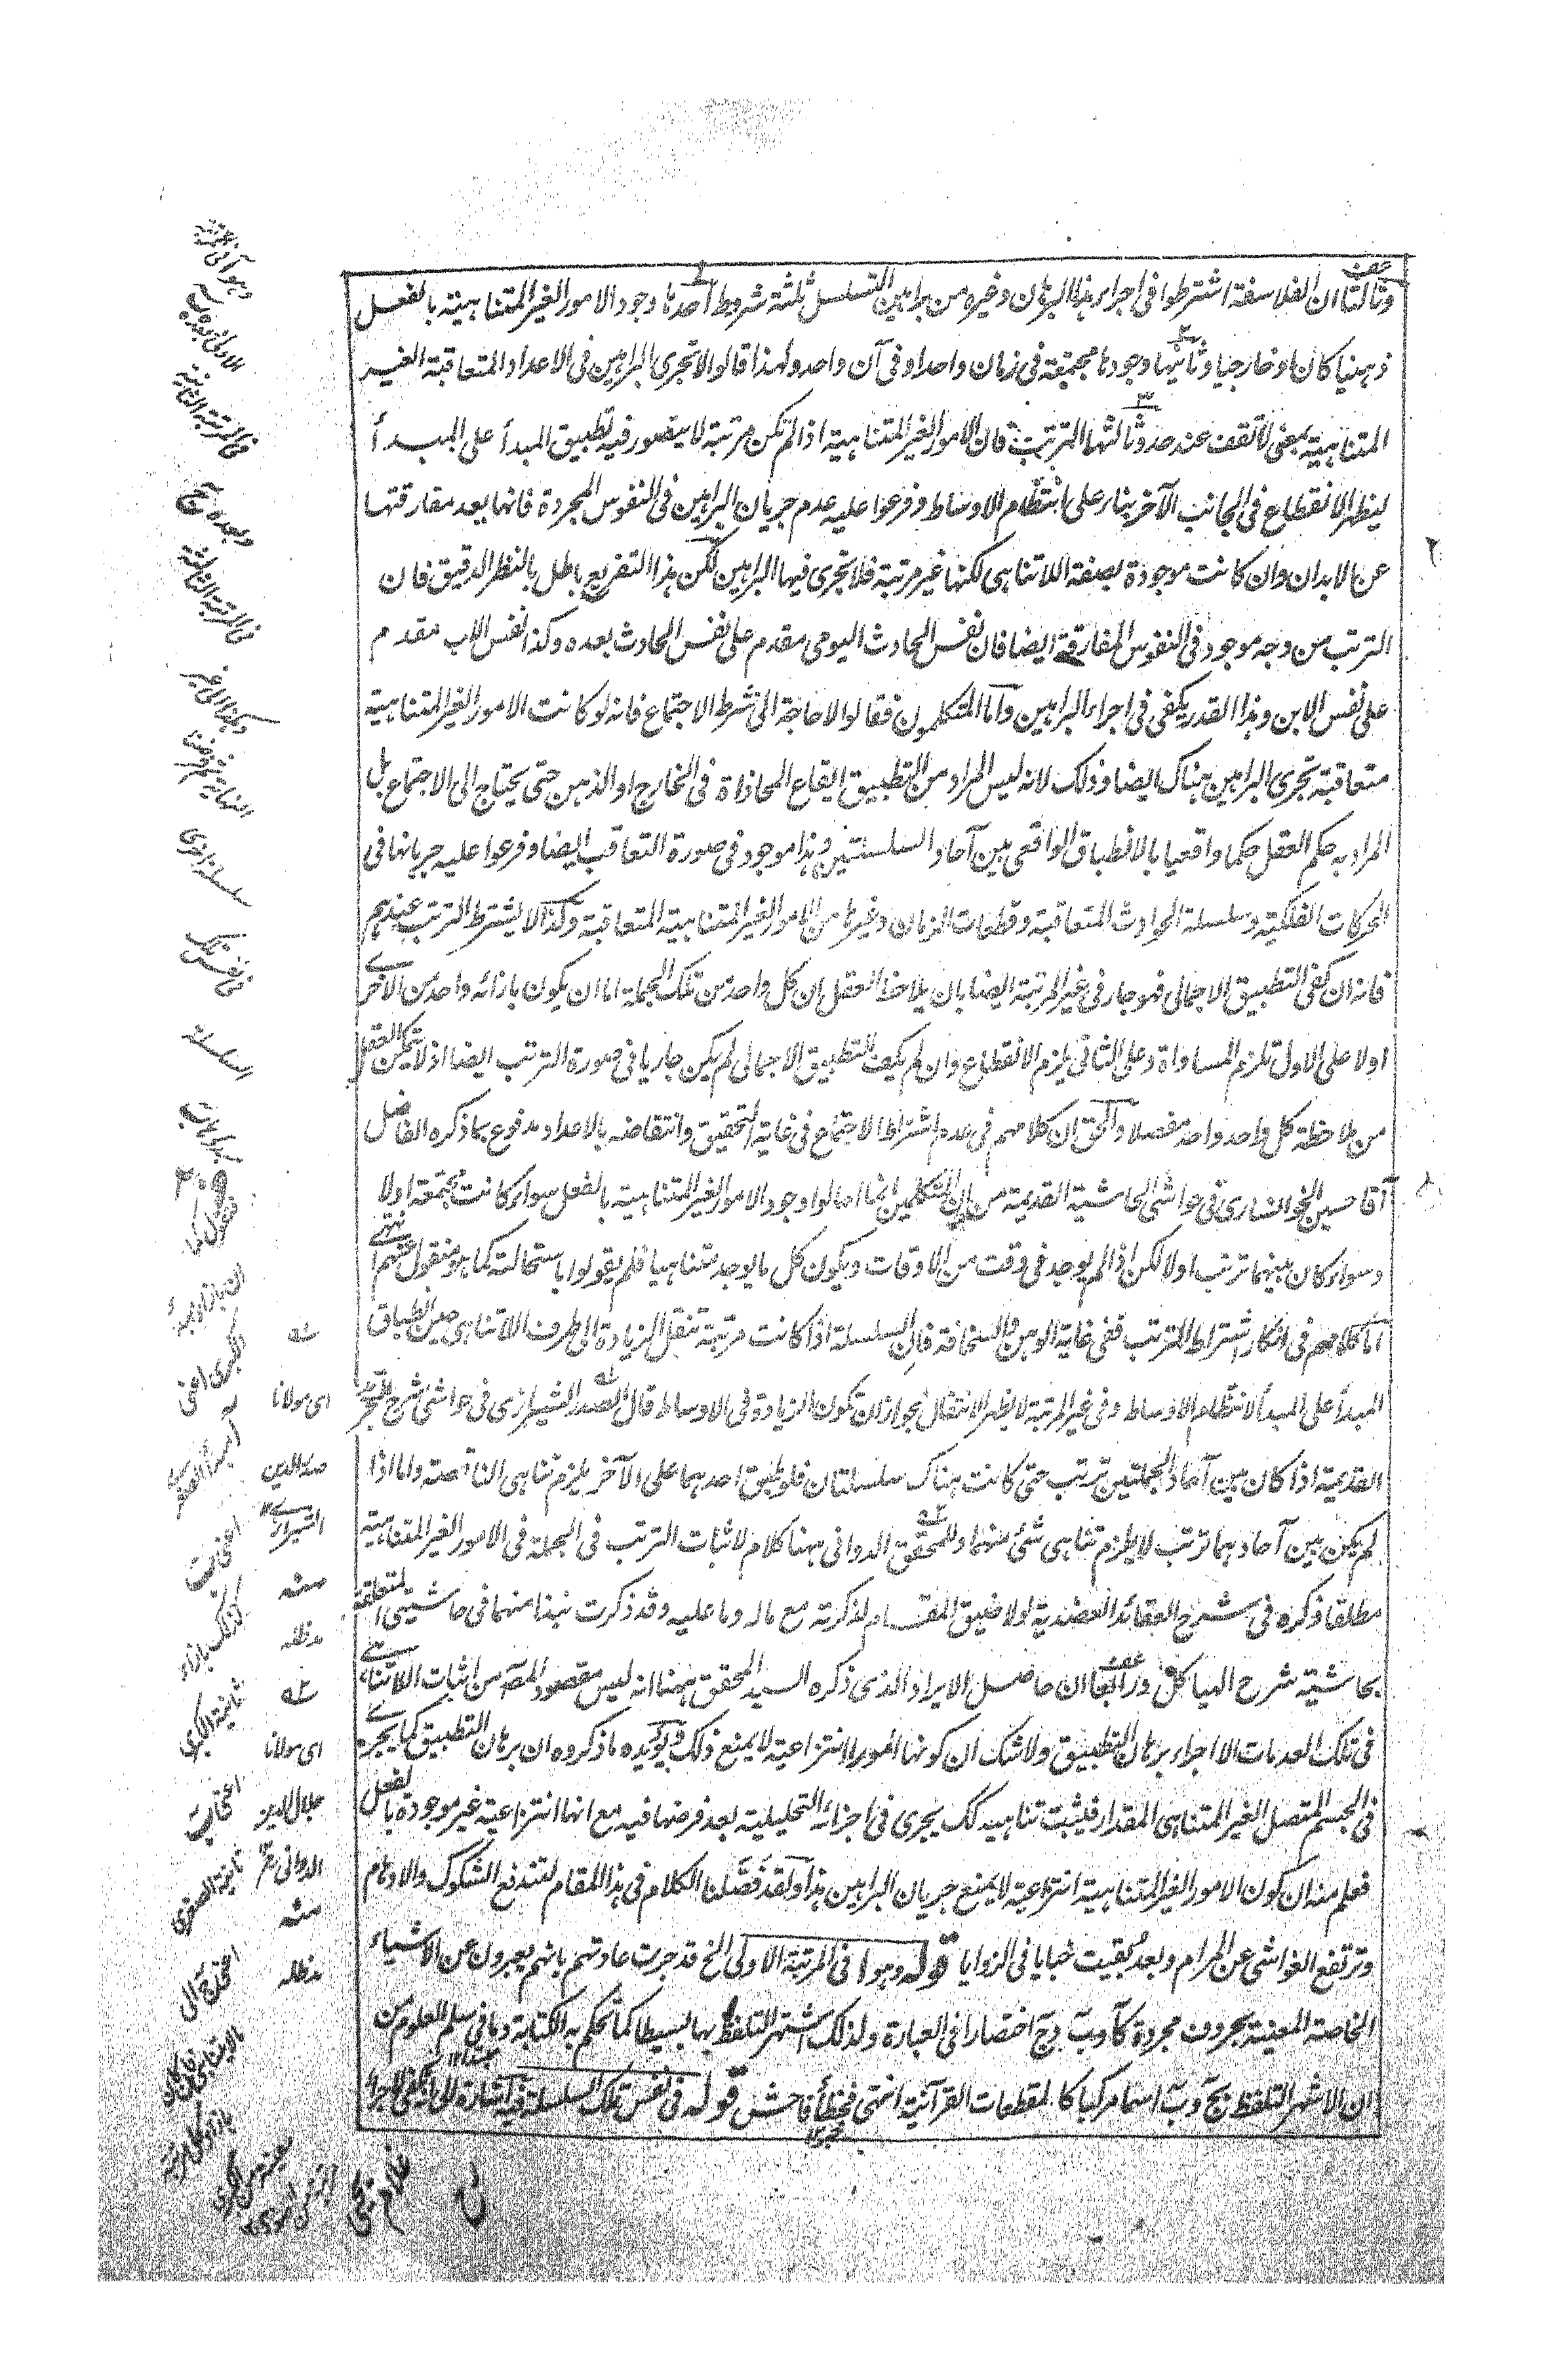 وثالثا ان الفلاسفة اشترطوا فى اجراء هذا البرهان وغيره من براهين التسلسل ثلثة شروط احدها وجود الامور الغير المتناهية بالفعل
ذهنيا كان او خارجيا وثانيها وجودها مجتمعة فى زمان واحد او فى آن واحد ولهذا قالوا لا تجرى البراهين فى الاعداد المتعاقبة الغير
المتناهية بمعنى لا تقف عند حد وثالثها الترتب فان الامور الغير المتناهية اذا لم تكن مرتبة لا يتصور فيه تطبيق المبدأ على المبدأ
ليظهر الانقطاع فى الجانب الآخر بناء على انتظام الاوساط وفرعوا عليه عدم جريان البراهين فى النفوس المجردة فانها بعد مفارقتها
عن الابدان وان كانت موجودة بصفة اللاتناهى لكنها غير مرتبة فلا تجرى فيها البراهين لكن هذا التفريع باطل بالنظر الدقيق فان
الترتب من وجه موجود فى النفوس المفارقة ايضا فان نفس الحادث اليومى مقدم على نفس الحادث بعده وكذا نفس الاب مقدم
على نفس الابن وهذا القدر يكفى فى اجراء البراهين واما المتكلمون فقالوا لا حاجة الى شرط الاجتماع فانه لو كانت الامور الغير المتناهية
متعاقبة تجرى البراهين هناك ايضا وذلك لانه ليس المراد من التطبيق ايقاع المحاذاة فى الخارج او الذهن حتى يحتاج الى الاجتماع بل
المراد به حكم العقل حكما واقعيا بالانطباق الواقعى بين آحاد السلسلتين وهذا موجود فى صورة التعاقب ايضا وفرعوا عليه جريانها فى
الحركات الفلكية وسلسلة الحوادث المتعاقبة وقطعات الزمان وغيرها من الامور الغير المتناهية المتعاقبة وكذا لا يشترط الترتب عندهم
فانه ان كفى التطبيق الاجمالى فهو جار فى غير المرتبة ايضا بان يلاحظ العقل ان كل واحد من تلك الجملة اما ان يكون بازائه واحد من الاخرى
اولا على الاول تلزم المساواة وعلى الثانى يلزم الانقطاع وان لم يكف التطبيق الاجمالى لم يكن جاريا فى صورة الترتب ايضا اذ لا يتمكن العقل
من ملاحظة كل واحد واحد مفصلا والحق ان كلامهم فى عدم اشتراط الاجتماع فى غاية التحقيق وانتقاضه بالاعداد مدفوع بما ذكره الفاضل
آقا حسين الخوانسارى فى حواشى الحاشية القديمة من ان المتكلمين انما احالوا وجود الامور الغير المتناهية بالفعل سواء كانت مجتمعة اولا
وسواء كان بينهما ترتب اولا لكن اذا لم يوجد فى وقت من الاوقات ويكون كل ما يوجد متناهيا فلم يقولوا باستحالته كما هو منقول عنهم انتهى
اما كلامهم فى انكار اشتراط الترتب ففى غاية الوهن والسخافة فان السلسلة اذا كانت مرتبة تنقل الزيادة الى طرف اللاتناهى حين انطباق
المبدأ على المبدأ لانتظام الاوساط وفى غير المرتبة لا يظهر الانتقال لجواز ان تكون الزيادة فى الاوساط قال الصدر الشيرازى فى حواشى شرح التجريد
القديمة اذا كان بين آحاد الجملتين ترتب حتى كانت هناك سلسلتان فلو طبق احدهما على الآخر يلزم تناهى الناقصة واما اذا
لم يكن بين آحادهما ترتب لا يلزم تناهى شئ منهما وللمحقق الدوانى ههنا كلام لاثبات الترتب فى الجملة فى الامور الغير المتناهية
مطلقا ذكره فى شرح العقائد العضدية لولا ضيق المقام لذكرته مع ماله وما عليه وقد ذكرت نبذا منهما فى حاشيتى المتعلقة
بحاشية شرح الهياكل ورابعا ان حاصل الايراد الذى ذكره السيد المحقق ههنا انه ليس مقصود المص من اثبات اللاتناهى
فى تلك العدمات الا اجراء برهان التطبيق ولا شك ان كونها امورا انتزاعية لا يمنع ذلك ويؤيده ما ذكروه ان برهان التطبيق كما يجرى
فى الجسم المتصل الغير المتناهى المقدار فيثبت تناهيه كك يجرى فى اجزائه التحليلية بعد فرضها فيه مع انها انتزاعية غير موجودة بالفعل
فعلم منه ان كون الامور الغير المتناهية انتزاعية لا يمنع جريان البراهين هذا ولقد فصلنا الكلام فى هذا المقام لتندفع الشكوك والاوهام
وترتفع الغواشى عن المرام وبعد بقيت خبايا فى الزوايا قوله وهو ا فى المرتبة الاولى الخ قد جرت عادتهم بانهم يعبرون عن الاشياء
الخاصة المعينة بحروف مجردة كآ وب وج اختصارا فى العبارة ولذلك اشتهر التلفظ بها بسيطا كما تحكم به الكتابة وما فى سلم العلوم من
ان الاشهر التلفظ بج وب اسما مركبا كالمقطعات القرآنية انتهى فخطأ فاحش قوله فى نفس تلك السلسلة فيه اشارة الى انه يكفى لاجراء
فى المرتبة الثانية
وبعده ج
فى المرتبة الثالثة
سلسلة اخرى
فى نفس تلك
السلسلة
اى مولانا
صدر الدين
الشيرازى ١٢
منه
مدظله
اى مولانا
جلال الدين
الدوانى
منه
مدظله
غلام يحيى